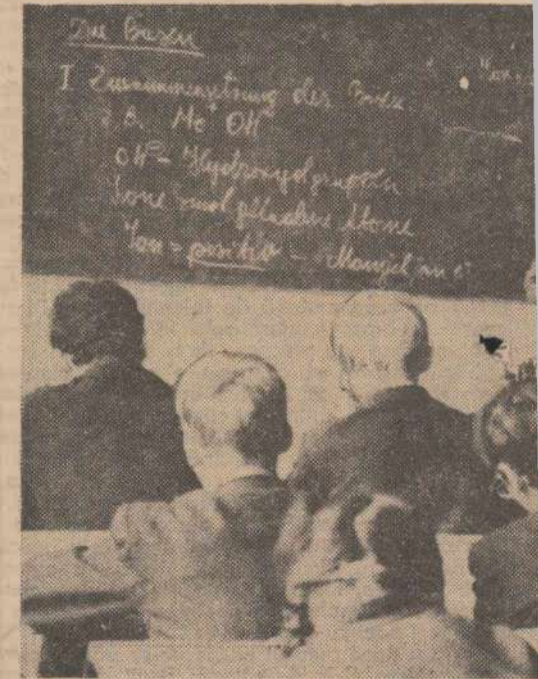 Die Basen
I Zusammensetzung der Basen
z.B. Me⁺ OH⁻
OH⁻ = Hydroxydgruppen
Ione sind geladene Atome
Ion = positiv = Mangel an e⁻